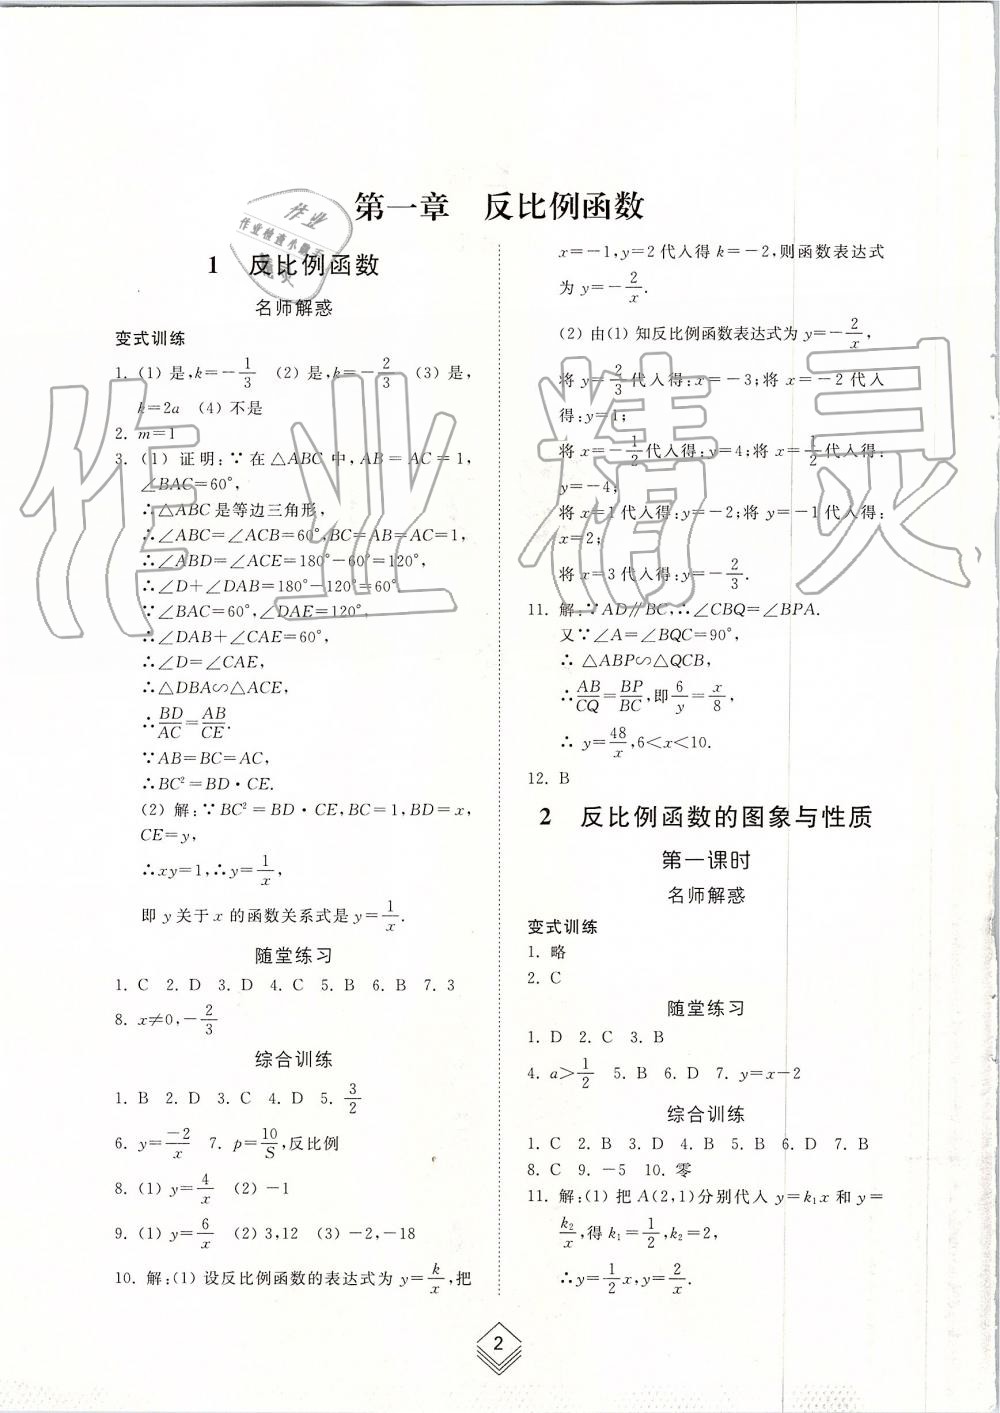 第一章 反比例函数
作业
作业检查小助手
1 反比例函数
名师解惑
变式训练
1. (1) 是,k=-1/3 (2) 是,k=-2/3 (3) 是,
k=2a (4) 不是
2. m=1
3. (1) 证明:∵在△ABC 中,AB=AC=1,
∠BAC=60°,
∴△ABC 是等边三角形,
∴∠ABC=∠ACB=60°,BC=AB=AC=1,
∴∠ABD=∠ACE=180°-60°=120°,
∴∠D+∠DAB=180°-120°=60°
∵∠BAC=60°,∠DAE=120°,
∴∠DAB+∠CAE=60°,
∴∠D=∠CAE,
∴△DBA∽△ACE,
∴BD/AC=AB/CE.
∵AB=BC=AC,
∴BC²=BD·CE.
(2) 解:∵BC²=BD·CE,BC=1,BD=x,
CE=y,
∴xy=1,∴y=1/x,
即 y 关于 x 的函数关系式是 y=1/x.
随堂练习
1. C 2. D 3. D 4. C 5. B 6. B 7. 3
8. x≠0,-2/3
综合训练
1. B 2. D 3. C 4. D 5. 3/2
6. y=-2/x 7. p=10/S,反比例
8. (1) y=4/x (2) -1
9. (1) y=6/x (2) 3,12 (3) -2,-18
10. 解:(1) 设反比例函数的表达式为 y=k/x,把
x=-1,y=2 代入得 k=-2,则函数表达式
为 y=-2/x.
(2) 由(1) 知反比例函数表达式为 y=-2/x,
将 y=2/3代入得:x=-3;将 x=-2 代入
得:y=1;
将 x=-1/2代入得:y=4;将 x=1/2代入得:
y=-4;
将 x=1 代入得:y=-2;将 y=-1 代入得:
x=2;
将 x=3 代入得:y=-2/3.
11. 解:∵AD∥BC,∴∠CBQ=∠BPA.
又∵∠A=∠BQC=90°,
∴ △ABP∽△QCB,
∴AB/CQ=BP/BC,即6/y=x/8,
∴ y=48/x,6<x<10.
12. B
2 反比例函数的图象与性质
第一课时
名师解惑
变式训练
1. 略
2. C
随堂练习
1. D 2. C 3. B
4. a>1/2 5. B 6. D 7. y=x-2
综合训练
1. C 2. B 3. D 4. B 5. B 6. D 7. B
8. C 9. -5 10. 零
11. 解:(1) 把 A(2,1)分别代入 y=k₁x 和 y=
k₂/x,得 k₁=1/2,k₂=2,
∴y=1/2x,y=2/x.
2
作业精灵